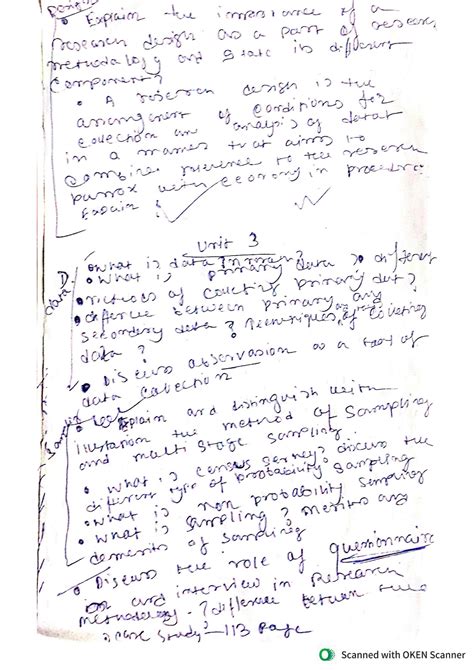 Explain the importance of a
research design as a part of research
methodology and state its different
component?
• A research design is the
arrangement of conditions for
collection and analysis of data
in a manner that aims to
combine relevance to the research
with economy in procedure
Explain
Unit 3
• What is data
• What is primary data? different
• methods of collecting primary data?
• difference between primary and
secondary data? Techniques of collecting
data?
• Discuss observasion as a tool of
data collection
• Explain and distinguish with
the method of sampling
and multi stage sampling.
• What is census survey? discuss the
different type of probability sampling
• What is non probability sampling
• What is sampling? merits and
demerits of sampling
• Discuss the role of questionnaire
and interview in Research
methodology? difference between the
case study — 113 page
Scanned with OKEN Scanner